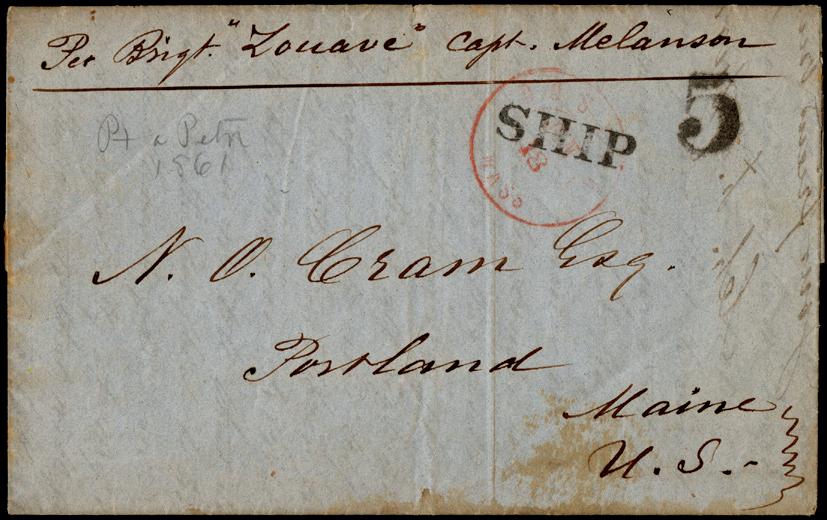 Per Brigt. "Zouave" Capt. Melanson
SHIP
5
18
MASS
Pt a Petre
1861
N. O. Cram Esq.
Portland
Maine
U. S.